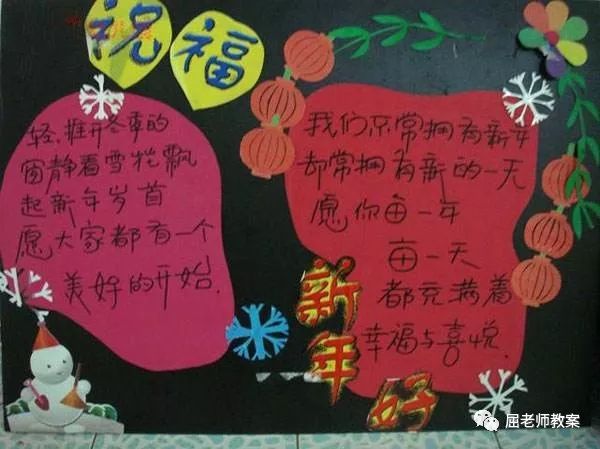 祝福
轻.推开冬季的
窗静看雪花飘
起新年岁首
愿大家都有一个
美好的开始.
我们不常拥有新年
却常拥有新的一天
愿你每一年
每一天
都充满着
幸福与喜悦.
新年好
屈老师教案